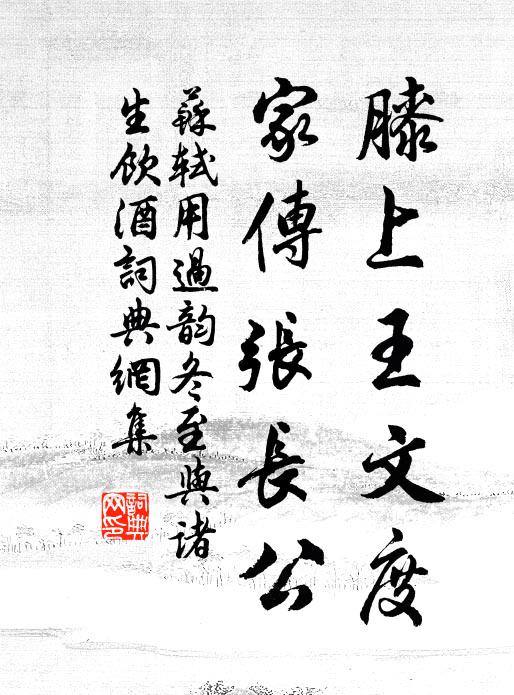 膝上王文度
家傳張長公
蘇軾用過韵冬至與諸
生飲酒詞典網集
詞典
网印